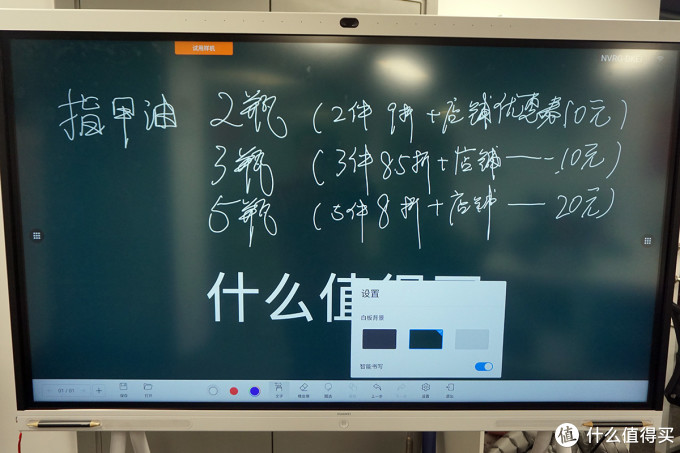 试用样机
指甲油 2瓶 (2件9折+店铺优惠券10元)
3瓶 (3件8.5折+店铺——10元)
5瓶 (5件8折+店铺——20元)
什么值得买
设置
白板背景
智能书写
值 什么值得买